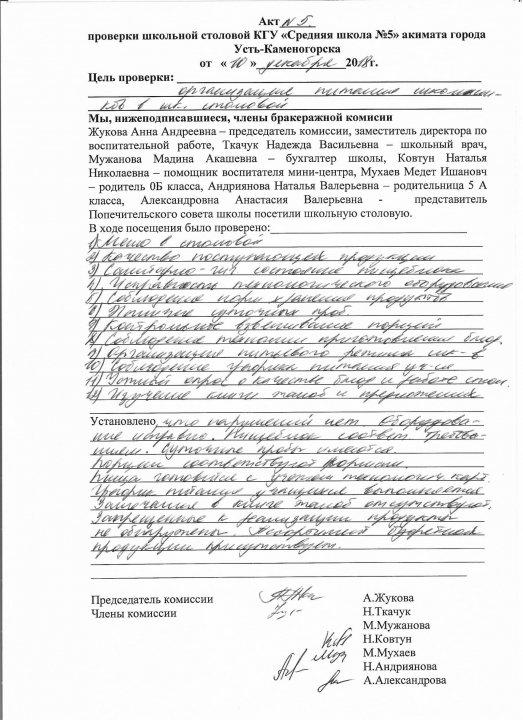 Акт № 5.
проверки школьной столовой КГУ «Средняя школа №5» акимата города
Усть-Каменогорска
от « 10 » декабря 2018г.
Цель проверки:
организация питания школьни-
ков в шк. столовой
Мы, нижеподписавшиеся, члены бракеражной комисии
Жукова Анна Андреевна – председатель комиссии, заместитель директора по
воспитательной работе, Ткачук Надежда Васильевна – школьный врач,
Мужанова Мадина Акашевна – бухгалтер школы, Ковтун Наталья
Николаевна – помощник воспитателя мини-центра, Мухаев Медет Ишанович
– родитель 0Б класса, Андриянова Наталья Валерьевна – родительница 5 А
класса, Александровна Анастасия Валерьевна - представитель
Попечительского совета школы посетили школьную столовую.
В ходе посещения было проверено:
1) Меню в столовой
2) Качество поступающей продукции
3) Санитарно-гиг состояние пищеблока
4) Исправность технологического оборудования
5) Соблюдение норм хранения продуктов
6) Наличие суточных проб
7) Контрольное взвешивание порций
8) Соблюдение технологии приготовления блюд.
9) Организация питьевого режима шк-в
10) Соблюдение графика питания уч-ся
11) Устный опрос о качестве блюд и работе стол.
12) Изучение книги жалоб и предложений
Установлено, что нарушений нет. Оборудова-
ние исправно. Пищеблок соответ. требова-
ниям. Суточные пробы имеются.
Порции соответствуют нормам.
Пища готовится с учетом технологич. карт.
График питания учащимися выполняется
Замечания в книге жалоб отсутствуют.
Запрещенные к реализации продукты
не обнаружены. Ассортимент буфетной
продукции присутствует.
Председатель комиссии А.Жукова
Члены комиссии Н.Ткачук
М.Мужанова
Н.Ковтун
М.Мухаев
Н.Андриянова
А.Александрова